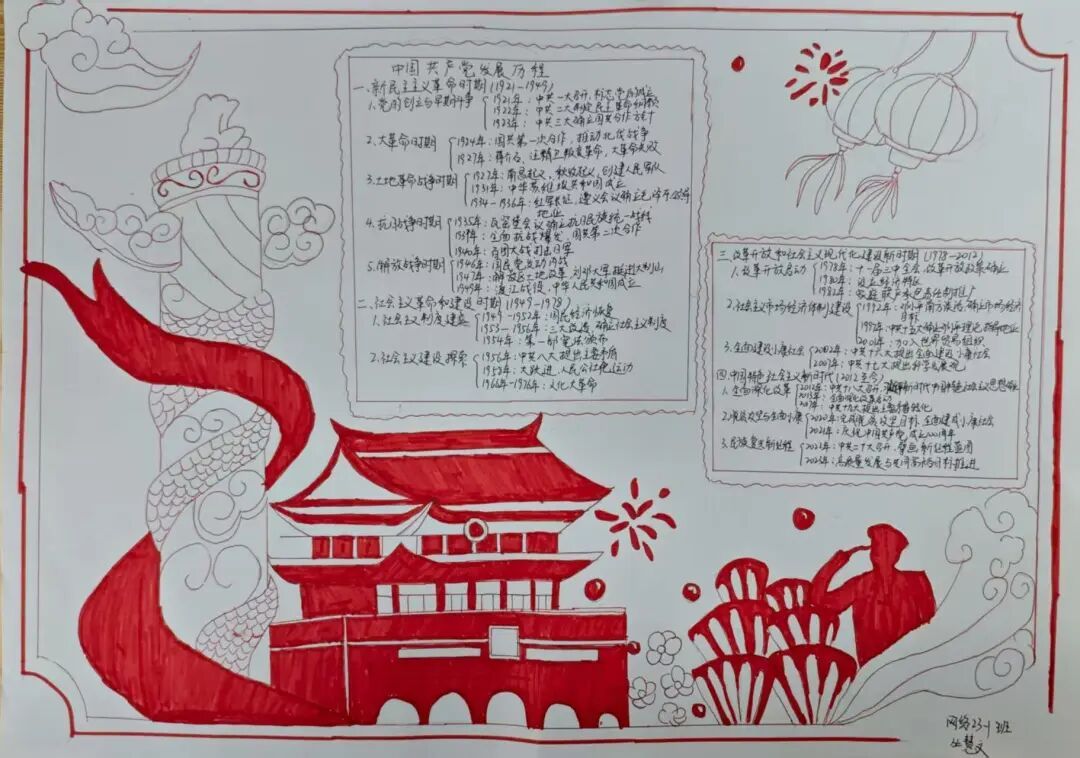 中国共产党发展历程
一、新民主主义革命时期(1921-1949)
1.党的创立与早期斗争
1921年:中共一大召开,标志党的诞生
1922年:中共二大制定民主革命纲领
1923年:中共三大确立国共合作方针
2.大革命时期
1924年:国共第一次合作,推动北伐战争
1927年:蒋介石、汪精卫叛变革命,大革命失败
3.土地革命战争时期
1927年:南昌起义,秋收起义,创建人民军队
1931年:中华苏维埃共和国成立
1934-1936年:红军长征,遵义会议确立毛泽东领导
地位
4.抗日战争时期
1935年:瓦窑堡会议确立抗日民族统一战线
1937年:全面抗战爆发,国共第二次合作
1940年:百团大战打击日军
5.解放战争时期
1946年:国民党发动内战
1947年:解放区土地改革,刘邓大军挺进大别山
1949年:渡江战役,中华人民共和国成立
二、社会主义革命和建设时期(1949-1978)
1.社会主义制度建立
1949-1952年:国民经济恢复
1953-1956年:三大改造,确立社会主义制度
1954年:第一部宪法颁布
2.社会主义建设探索
1956年:中共八大提出主要矛盾
1958年:大跃进,人民公社化运动
1966年-1976年:文化大革命
三、改革开放和社会主义现代化建设新时期(1978-2012)
1.改革开放启动
1978年:十一届三中全会,改革开放政策确立
1980年:设立经济特区
1982年:家庭联产承包责任制推广
2.社会主义市场经济体制建设
1992年:邓小平南方谈话,确立市场经济
目标
1997年:中共十五大确立邓小平理论指导地位
2001年:加入世界贸易组织
3.全面建设小康社会
2002年:中共十六大提出全面建设小康社会
2007年:中共十七大提出科学发展观
四、中国特色社会主义新时代(2012至今)
1.全面深化改革
2012年:中共十八大召开,
2013年:全面深化改革启动
2017年:中共十九大提出主要矛盾转化
2.脱贫攻坚与全面小康
2020年:完成脱贫攻坚目标,全面建成小康社会
2021年:庆祝中国共产党成立100周年
3.民族复兴新征程
2022年:中共二十大召开,擘画新征程蓝图
2023年:高质量发展与共同富裕目标推进
网络23-1班